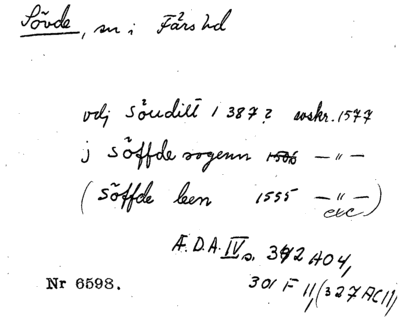 Sövde, sn i Färs hd
vdj Söuditt 1387? avskr. 1577
j Söffde sogenn 1506 — " —
(Söffde leen 1555 — " —)
exc
Æ.D.A. IV s. 342 A04,
301 F 11, (327 AC11,
Nr 6598.